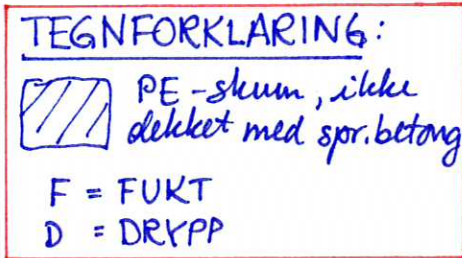 TEGNFORKLARING:
PE-skum, ikke
dekket med spr.betong
F = FUKT
D = DRYPP